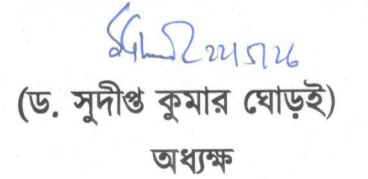 (ড. সুদীপ্ত কুমার ঘোড়ই)
অধ্যক্ষ